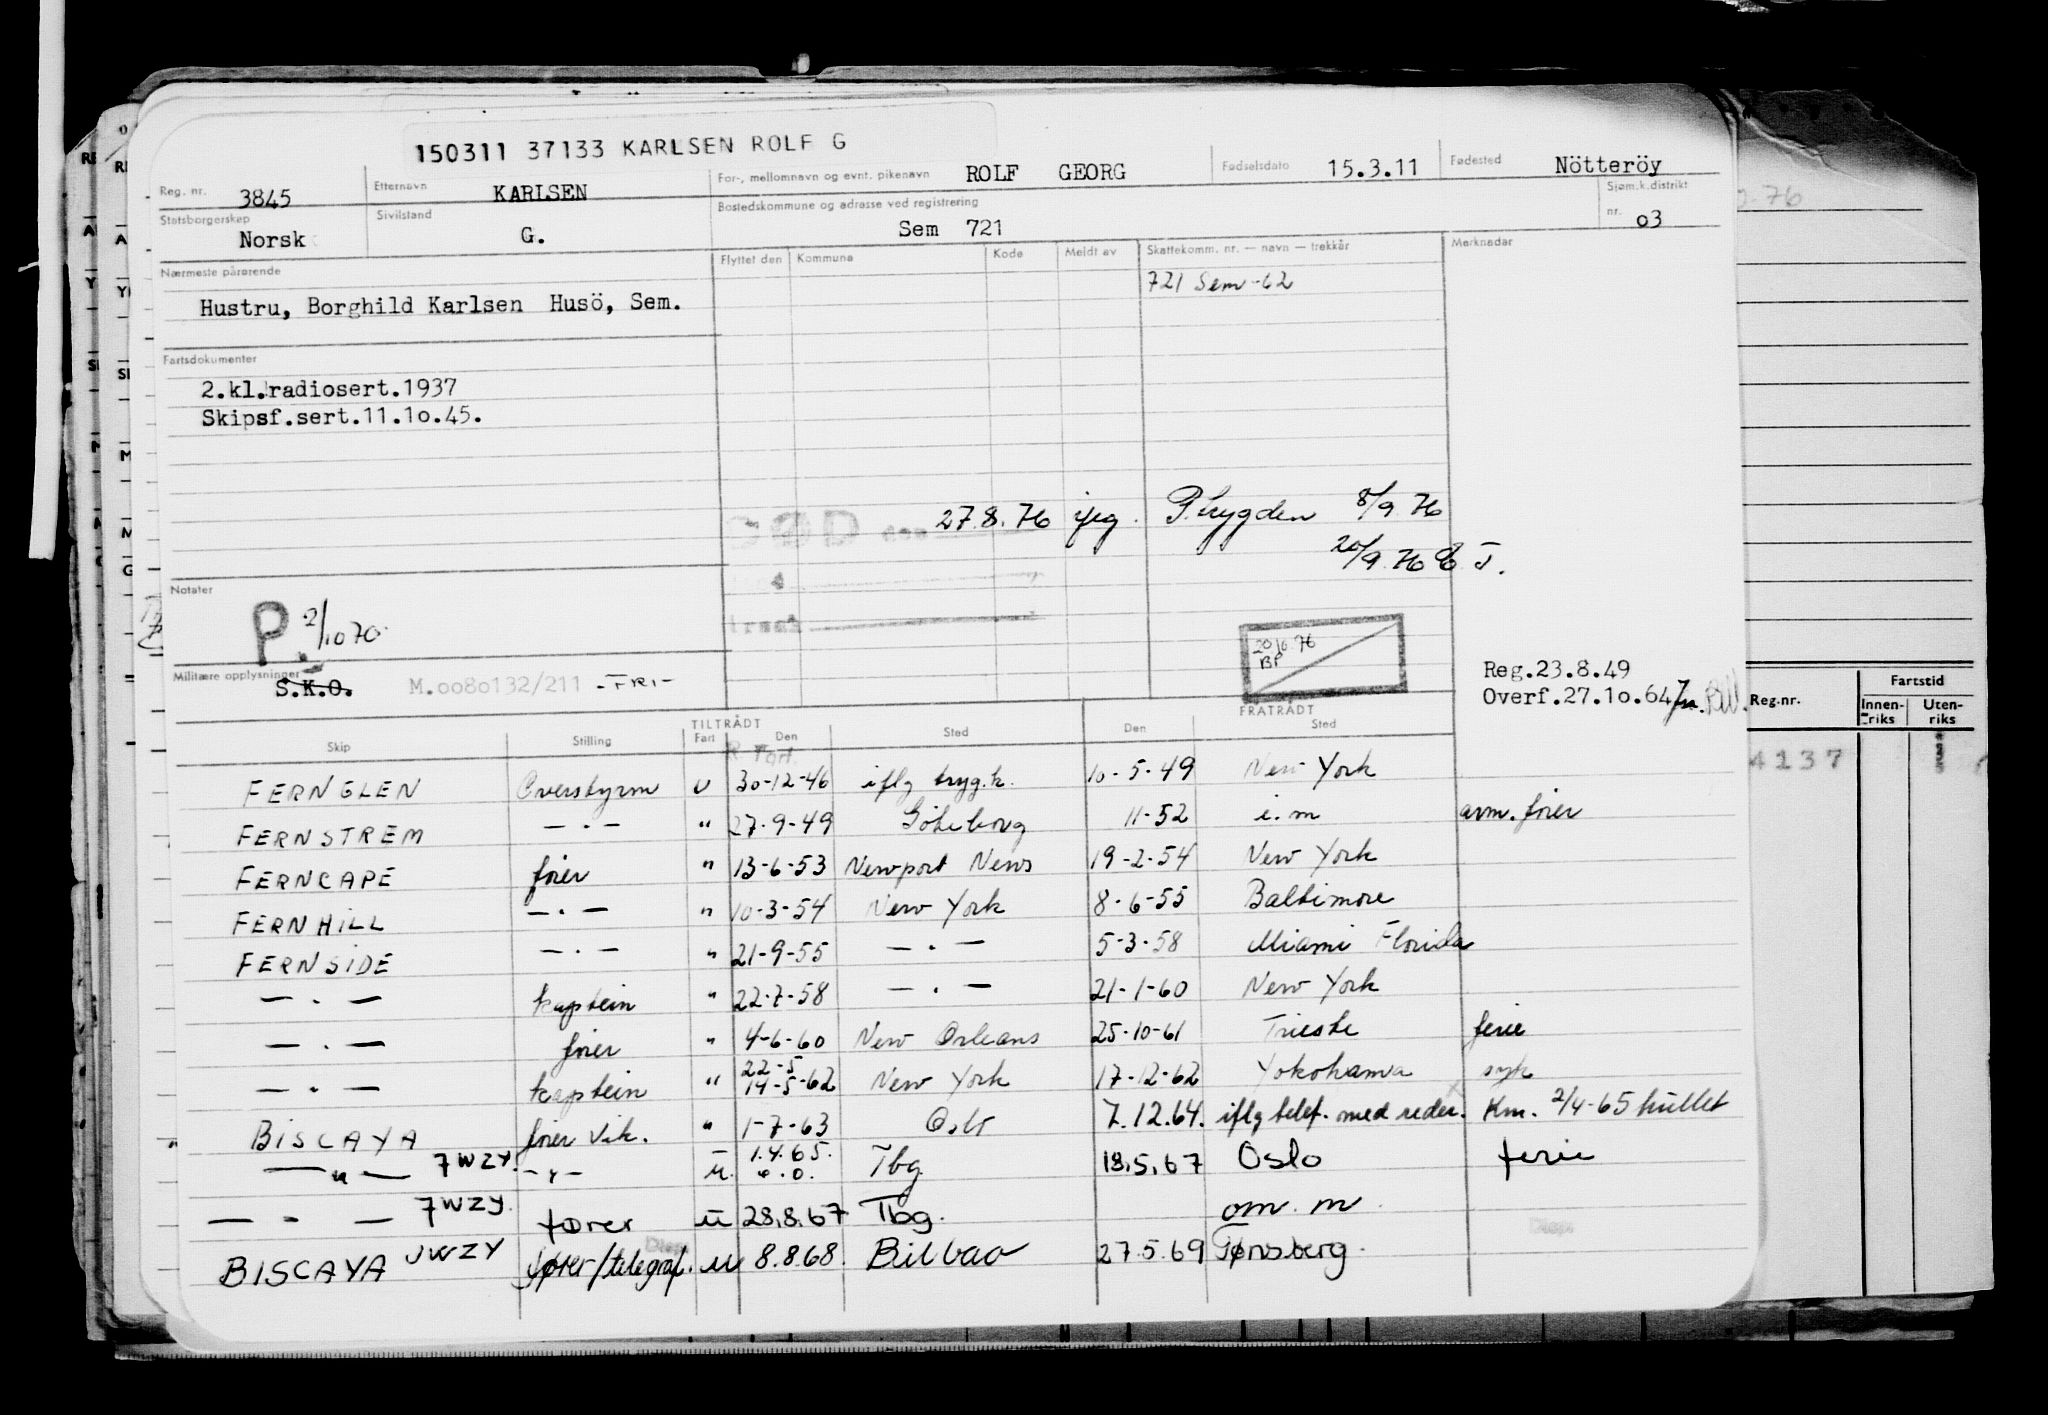 150311 37133 KARLSEN ROLF G
Reg. nr. 3845 Etternavn KARLSEN For-, mellomnavn og evnt. pikenavn ROLF GEORG Fødselsdato 15.3.11 Fødested Nötteröy
Statsborgerskap Norsk Sivilstand G. Bostedskommune og adresse ved registrering Sem 721 Sjøm.k.distrikt nr. o3
Nærmeste pårørende Flyttet den Kommune Kode Meldt av Skattekomm. nr. — navn — trekkår Merknader
721 Sem -62
Hustru, Borghild Karlsen Husö, Sem.
Fartsdokumenter
2.kl.radiosert.1937
Skipsf.sert.11.1o.45.
DØD den 27.8.76 iflg. P.trygden 8/9 76
20/9.76
Notater
P. 2/10 70
20/6.76
BP
Militære opplysninger S.K.O. M.oo8o132/211 -FRI-
Reg.23.8.49
Overf.27.1o.64
Reg.nr. Fartstid
Innen-riks Uten-riks
4137
TILTRÅDT FRATRÅDT
Skip Stilling Fart Den Sted Den Sted
FERNGLEN Overstyrm u 30-12-46 iflg tryg.k. 10-5-49 New York
FERNSTREM —·— " 27-9-49 Göteborg 11-52 i.m avm. fører
FERNCAPE fører " 13-6-53 Newport News 19-2-54 New York
FERNHILL —·— " 10-3-54 New York 8-6-55 Baltimore
FERNSIDE —·— " 21-9-55 —·— 5-3-58 Miami Florida
—·— kaptein " 22-7-58 —·— 21-1-60 New York
—·— fører " 4-6-60 New Orleans 25-10-61 Trieste ferie
22-5
—·— kaptein " 14-5-62 New York 17-12-62 Yokohama syk
BISCAYA fører vik. " 1-7-63 Oslo 7.12.64. iflg telef. med reder. Km. 2/4-65 hullet
—"— 7WZY. —"— u. 1.4.65. Tbg. 18.5.67 Oslo ferie
—"— 7WZY. fører u 28.8.67 Tbg. om. m.
BISCAYA JWZY fører/telegraf. u 8.8.68. Bilbao 27.5.69 Tønsberg.